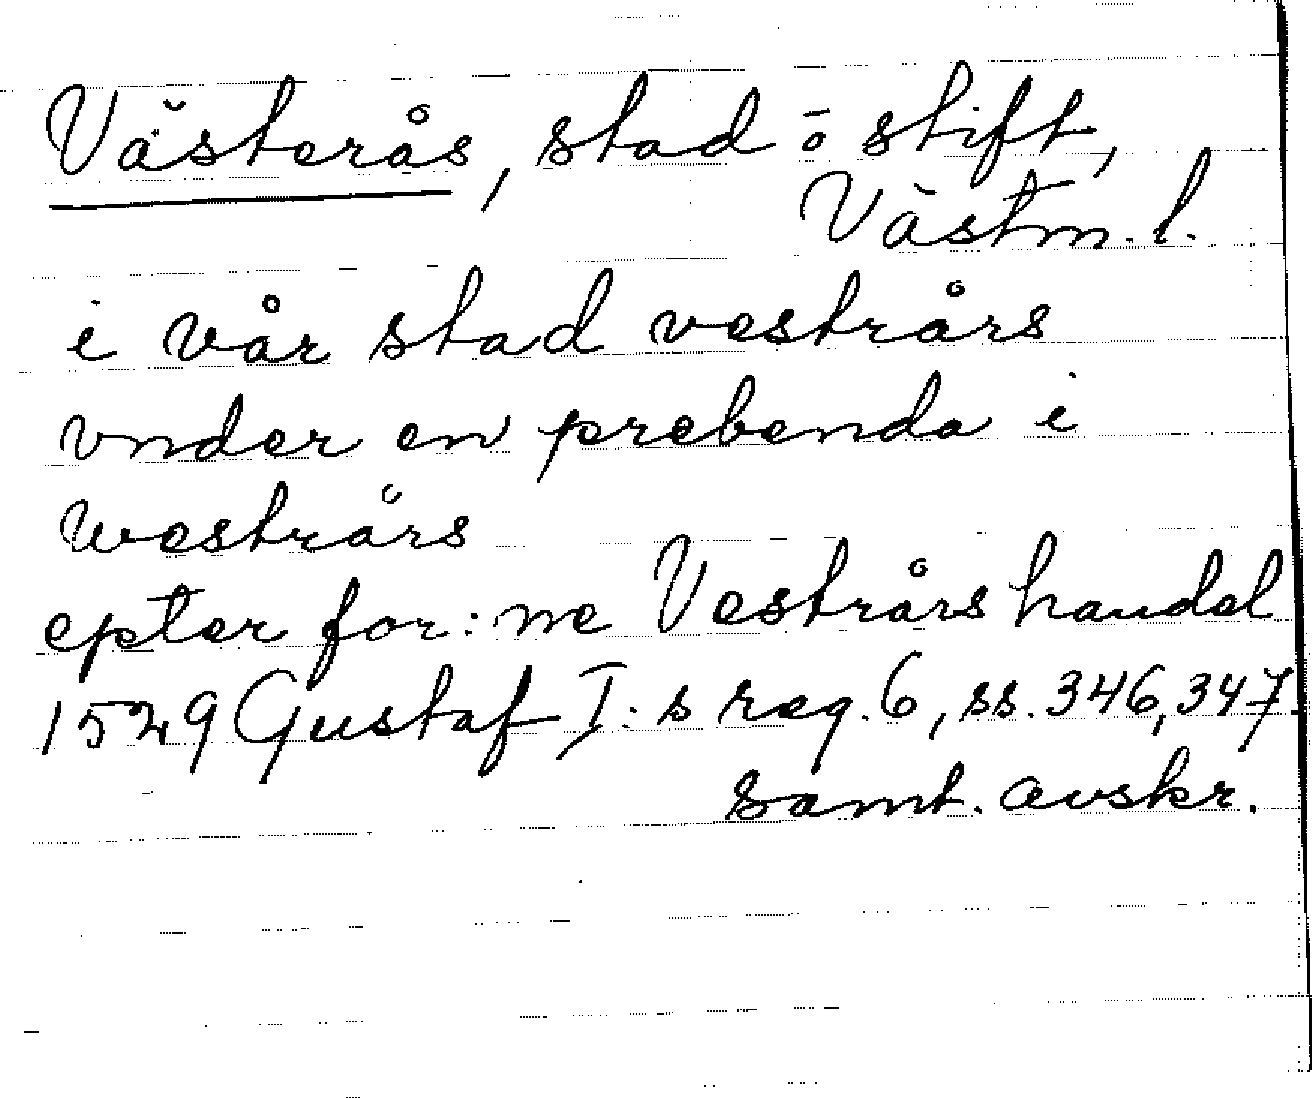 Västerås, stad o stift,
Västm. l.
i vår stad vestrårs
vnder en prebenda i
westrårs
epter for:ne Vestrårs handel
1529 Gustaf I:s reg. 6, ss. 346, 347
samt. avskr.